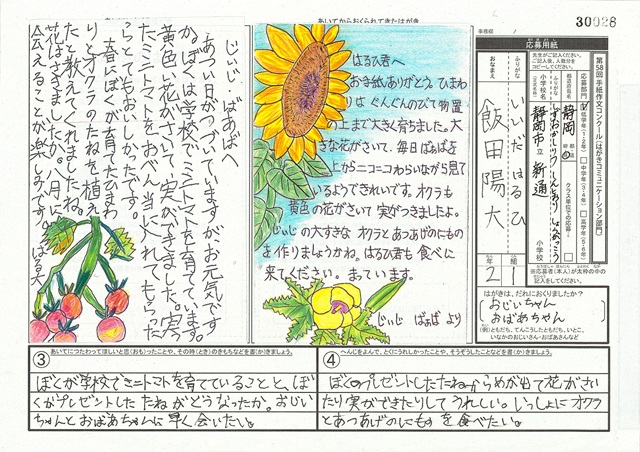 あいてからおくられてきたはがき
事務欄
30028
じいじ ばあばへ
あつい日がつづいていますがお元気です
か。ぼくは学校でミニトマトを育てています。
黄色い花がさいて実ができました。実っ
たミニトマトをおべん当に入れてもらった
らとてもおいしかったです。
春にぼくが育てたひまわ
りとオクラのたねを植え
たと教えてくれましたね。
花はさきましたか。八月に
会えることが楽しみです。
はる大
はるひ君へ
お手紙ありがとう。ひまわ
りは ぐんぐんのびて物置
の上まで大きく育ちました。大
きな花がさいて、毎日ばぁばを
上からニコニコわらいながら見て
いるようできれいです。オクラも
黄色の花がさいて 実がつきましたよ。
じぃじの大すきな オクラとあつあげのにもの
を作りましょうかね。はるひ君も食べに
来てください。まっています。
じぃじ ばぁば より
応募用紙
先生がご記入ください。
ご記入後、人数分を
コピーしてください。
第58回 手紙作文コンクール(はがきコミュニケーション部門)
応募部門
低学年(1・2年)
中学年(3・4年)
高学年(5・6年)
都道府県名
静岡
クラス単位での応募
小学校名
(正式名称)
しずおかしりつ しんどおり しょうがっこう
静岡市立 新通
小学校
※応募者(本人)が太枠の中の
記入をしてください。
ふりがな
いいだ はるひ
おなまえ
飯田陽大
2
年
1
組
はがきは、だれにおくりましたか?
おじいちゃん
おばあちゃん
(例)ともだち、てんこうしたともだち、いとこ、
いなかのおじいさん・おばあさんなど
③
あいてにつたわってほしいと思(おも)ったことや、その時(とき)のきもちなどを書(か)きましょう。
ぼくが学校でミニトマトを育てていることと、ぼ
くがプレゼントした たねがどうなったか。おじい
ちゃんとおばあちゃんに早く会いたい。
④
へんじをよんで、とくにうれしかったことや、そうぞうしたことなどを書(か)きましょう。
ぼくのプレゼントしたたねからめが出て花がさい
たり実ができたりしてうれしい。いっしょにオクラ
とあつあげのにもの を食べたい。